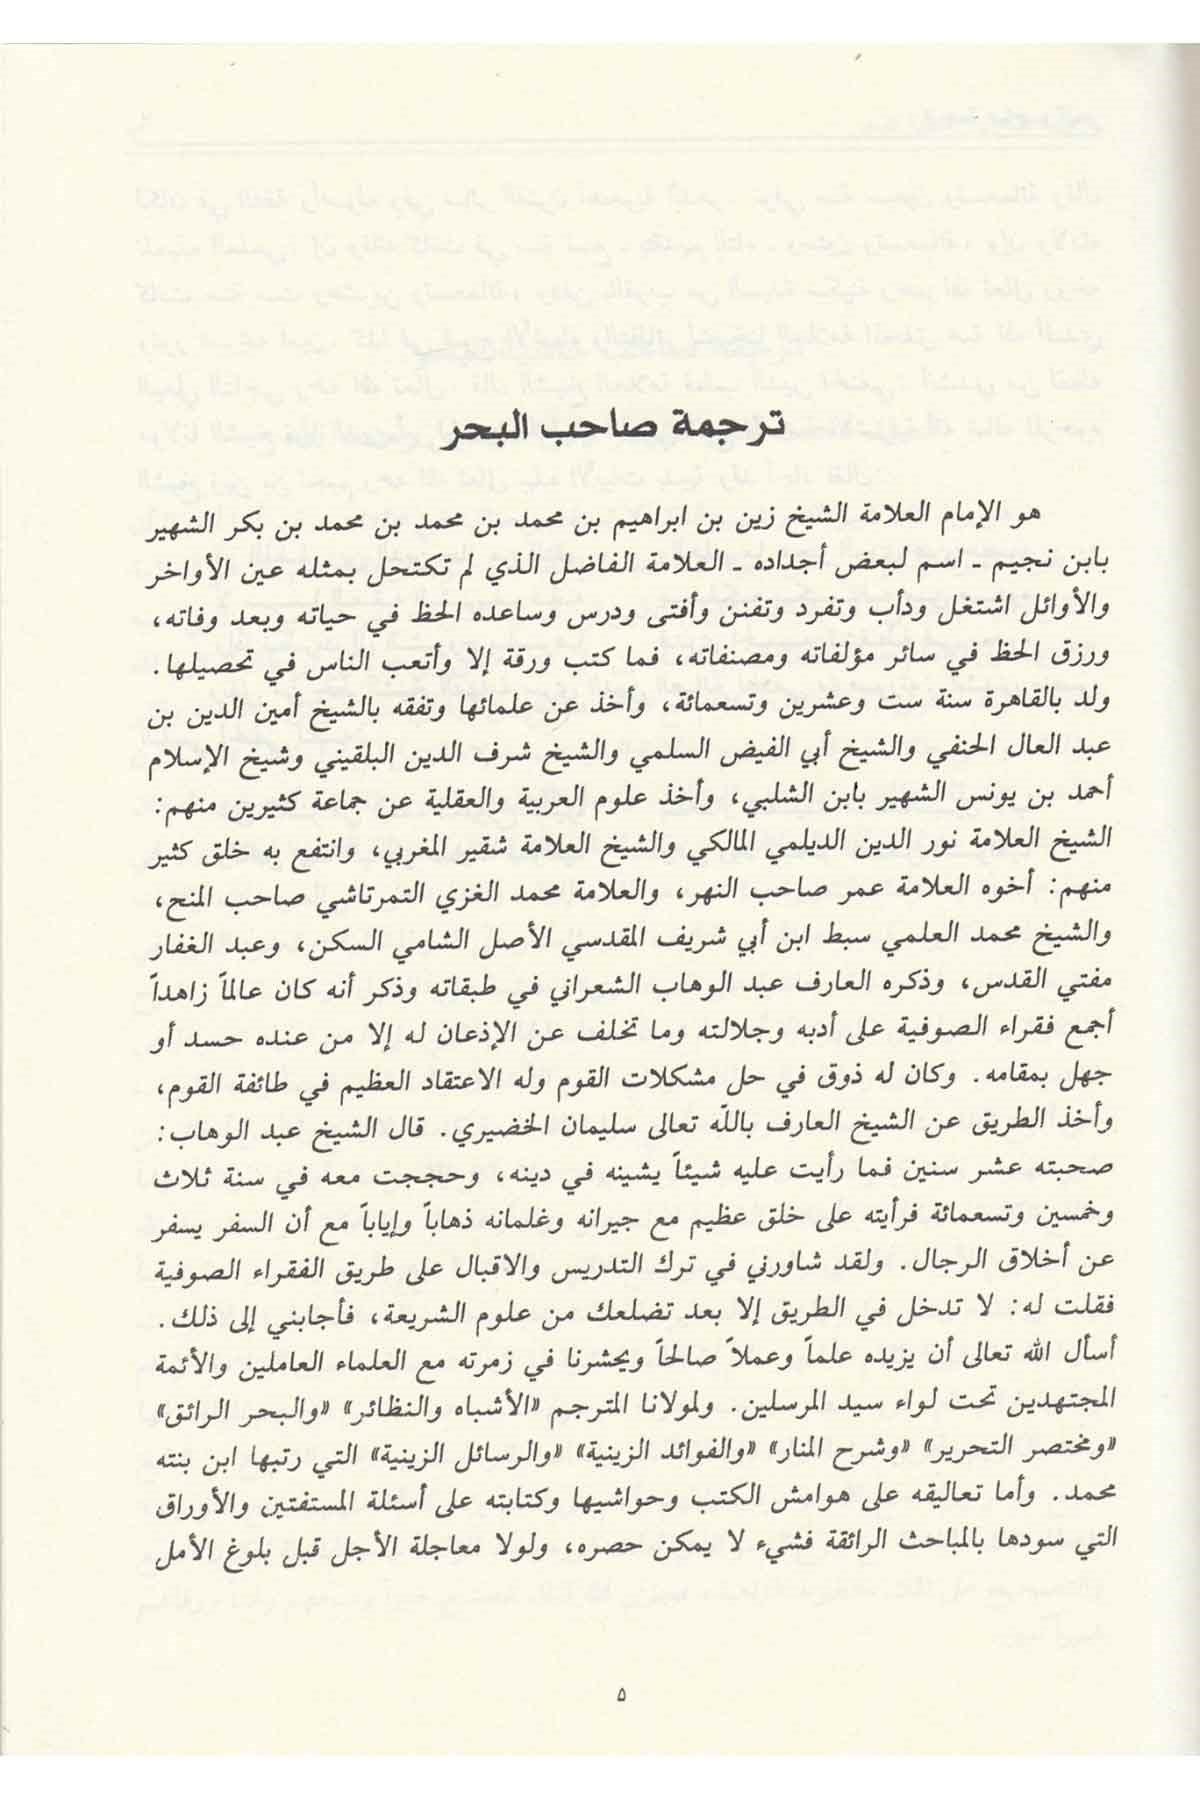 ترجمة صاحب البحر
هو الإمام العلامة الشيخ زين بن ابراهيم بن محمد بن محمد بن محمد بن بكر الشهير
بابن نجيم ـ اسم لبعض أجداده ـ العلامة الفاضل الذي لم تكتحل بمثله عين الأواخر
والأوائل اشتغل ودأب وتفرد وتفنن وأفتى ودرس وساعده الحظ في حياته وبعد وفاته،
ورزق الحظ في سائر مؤلفاته ومصنفاته، فما كتب ورقة إلا وأتعب الناس في تحصيلها.
ولد بالقاهرة سنة ست وعشرين وتسعمائة، وأخذ عن علمائها وتفقه بالشيخ أمين الدين بن
عبد العال الحنفي والشيخ أبي الفيض السلمي والشيخ شرف الدين البلقيني وشيخ الإسلام
أحمد بن يونس الشهير بابن الشلبي، وأخذ علوم العربية والعقلية عن جماعة كثيرين منهم:
الشيخ العلامة نور الدين الديلمي المالكي والشيخ العلامة شقير المغربي، وانتفع به خلق كثير
منهم: أخوه العلامة عمر صاحب النهر، والعلامة محمد الغزي التمرتاشي صاحب المنح،
والشيخ محمد العلمي سبط ابن أبي شريف المقدسي الأصل الشامي السكن، وعبد الغفار
مفتي القدس، وذكره العارف عبد الوهاب الشعراني في طبقاته وذكر أنه كان عالماً زاهداً
أجمع فقراء الصوفية على أدبه وجلالته وما تخلف عن الإذعان له إلا من عنده حسد أو
جهل بمقامه. وكان له ذوق في حل مشكلات القوم وله الاعتقاد العظيم في طائفة القوم،
وأخذ الطريق عن الشيخ العارف باللّه تعالى سليمان الخضيري. قال الشيخ عبد الوهاب:
صحبته عشر سنين فما رأيت عليه شيئاً يشينه في دينه، وحججت معه في سنة ثلاث
وخمسين وتسعمائة فرأيته على خلق عظيم مع جيرانه وغلمانه ذهاباً وإياباً مع أن السفر يسفر
عن أخلاق الرجال. ولقد شاورني في ترك التدريس والاقبال على طريق الفقراء الصوفية
فقلت له: لا تدخل في الطريق إلا بعد تضلعك من علوم الشريعة، فأجابني إلى ذلك.
أسأل الله تعالى أن يزيده علماً وعملاً صالحاً ويحشرنا في زمرته مع العلماء العاملين والأئمة
المجتهدين تحت لواء سيد المرسلين. ولمولانا المترجم «الأشباه والنظائر» «والبحر الرائق»
«ومختصر التحرير» «وشرح المنار» «والفوائد الزينية» «والرسائل الزينية» التي رتبها ابن بنته
محمد. وأما تعاليقه على هوامش الكتب وحواشيها وكتابته على أسئلة المستفتين والأوراق
التي سودها بالمباحث الرائقة فشيء لا يمكن حصره، ولولا معاجلة الأجل قبل بلوغ الأمل
٥